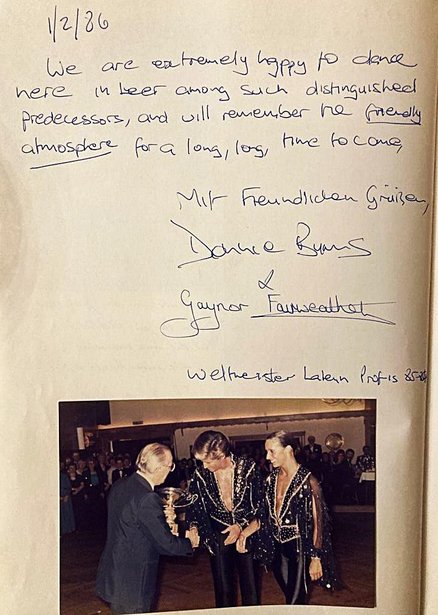 1/2/86
We are extremely happy to dance
here in Leer among such distinguished
predecessors, and will remember the friendly
atmosphere for a long, long, time to come,
Mit Freundlichen Grüßen,
Donnie Burns
&
Gaynor Fairweather
Weltmeister Latein Profis 85-86